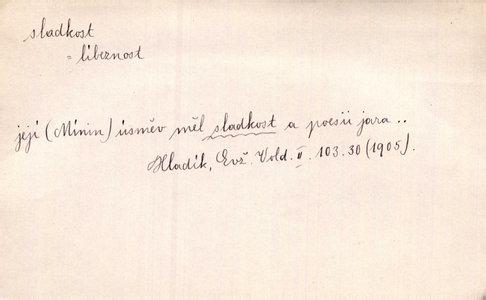 sladkost
= libeznost
její (Minin) úsměv měl sladkost a poesii jara..
Hladík, Evž. Vold. II. 103.30 (1905).